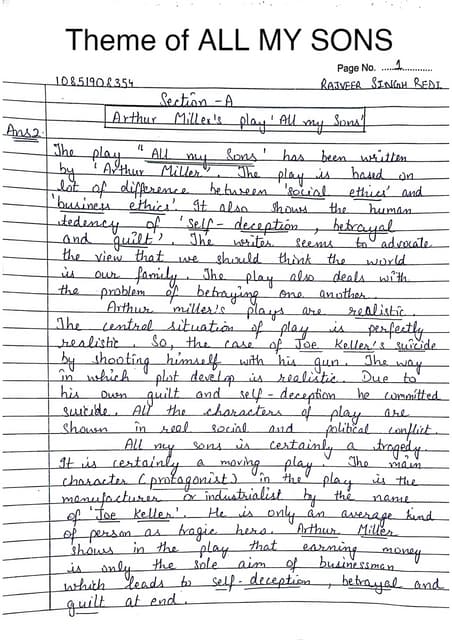 Theme of ALL MY SONS
Page No. .....1............
10851908354
RAJVEER SINGH REDI
Section - A
Arthur Miller's play 'All my Sons'
Ans2.
The play "All my Sons" has been written
by 'Arthur Miller'. The play is based on
lot of difference between 'social ethics' and
'business ethics'. It also shows the human
tedency of 'self-deception, betrayal
and guilt'. The writer seems to advocate
the view that we should think the world
is our family. The play also deals with
the problem of betraying one another.
Arthur miller's plays are realistic.
The central situation of play is perfectly
realistic. So, the case of Joe Keller's suicide
by shooting himself with his gun. The way
in which plot develop is realistic. Due to
his own guilt and self-deception he committed
suicide. All the characters of play are
shown in real social and political conflict.
All my sons is certainly a tragedy.
It is certainly a moving play. The main
character (protagonist) in the play is the
manufacturer or industrialist by the name
of 'Joe Keller'. He is only an average kind
of person as tragic hero. Arthur Miller
shows in the play that earning money
is only the sole aim of businessman
which leads to self-deception, betrayal and
guilt at end.